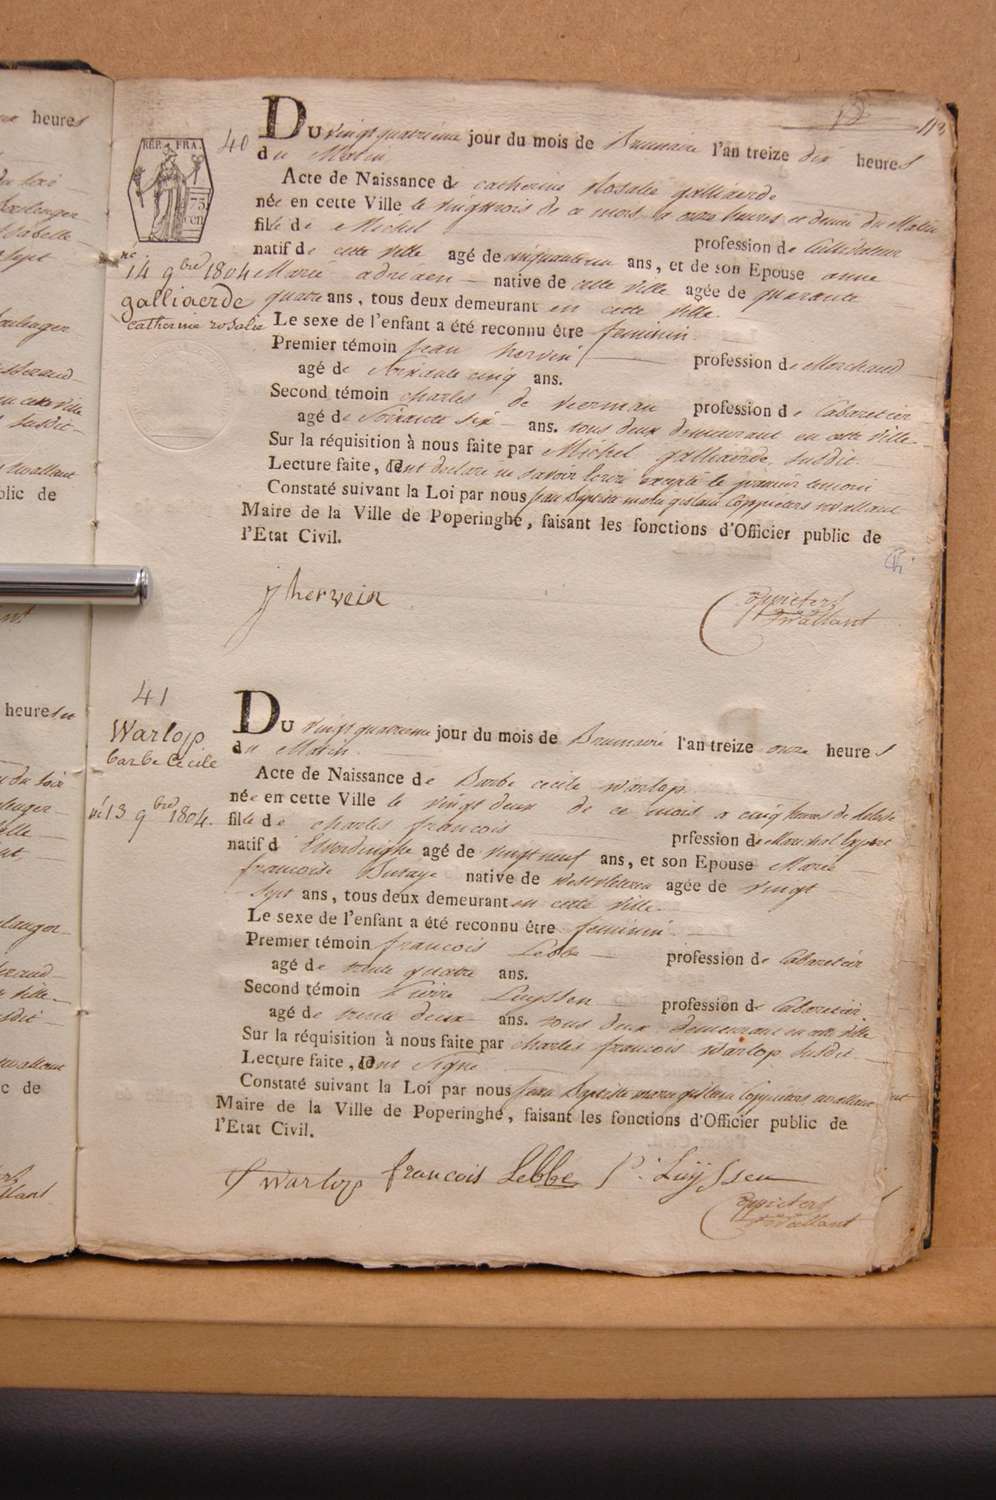 113
RÉP. FRA.
75 cen
40
Du vingt quatrieme jour du mois de Brumaire l'an treize dix heures
du Matin
Acte de Naissance de catherine Rosalie galliaerde
née en cette Ville le vingt trois de ce mois a onze heures et demie du Matin
fille de Michel profession de
natif de cette ville agé de cinquante un ans, et de son Epouse anne
Marie adriaen native de cette ville agée de quarante
quatre ans, tous deux demeurant en cette ville.
né 14 9bre 1804
galliaerde
catherine rosalie
Le sexe de l'enfant a été reconnu être feminin
Premier témoin jean hervein profession de Marchand
agé de soixante cinq ans.
Second témoin charles de veerman profession de Cabaretier
agé de Soixante six ans. tous deux demeurant en cette ville
Sur la réquisition à nous faite par Michel galliaerde susdit
Lecture faite, ont declare ne savoir ecrire excepté le premier temoin
Constaté suivant la Loi par nous jean Baptiste Coppieters wallant
Maire de la Ville de Poperinghe, faisant les fonctions d'Officier public de
l'Etat Civil.
j hervein
Coppieters
wallant
41
Warlop
barbe Cecile
né 13 9bre 1804.
Du vingt quatrieme jour du mois de Brumaire l'an treize onze heures
du Matin
Acte de Naissance de Barbe cecile warlop
née en cette Ville le vingt deux de ce mois a cinq heures de
fille de charles francois prfession de Marechal Expert
natif d Elverdinghe agé de vingt neuf ans, et son Epouse Marie
francoise Butaye native de westvleteren agée de vingt
Sept ans, tous deux demeurant en cette ville
Le sexe de l'enfant a été reconnu être feminin
Premier témoin francois Lebbe profession de Cabaretier
agé de trente quatre ans.
Second témoin Pierre Luyssen profession de Cabaretier
agé de trente deux ans. tous deux demeurant en cette ville
Sur la réquisition à nous faite par charles francois warlop susdit
Lecture faite, ont Signé
Constaté suivant la Loi par nous jean Baptiste Coppieters wallant
Maire de la Ville de Poperinghe, faisant les fonctions d'Officier public de
l'Etat Civil.
warlop francois Lebbe P. Luÿssen
Coppieters
wallant
heures
blic de
heures
c de